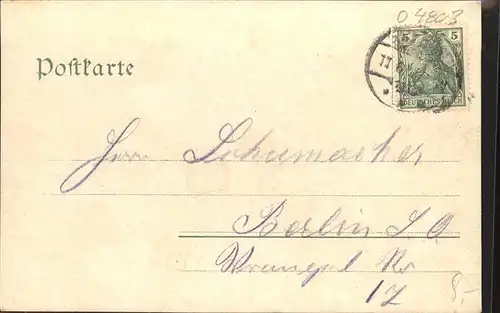 0 4803
5 5
DEUTSCHES REICH
11
Postkarte
Herrn Schumacher
Berlin S O
Wrangel Str
17
8.-